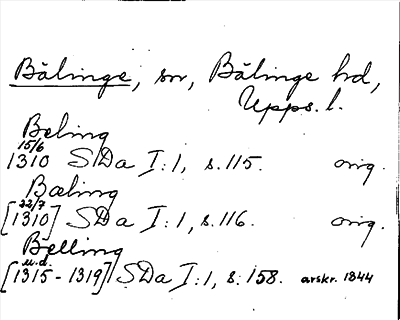 Bälinge, sn, Bälinge hd,
Upps. l.
Beling
15/6
1310 SDa I:1, s. 115. orig.
Bæling
22/7
[1310] SDa I:1, s. 116. orig.
Bælling
u.d.
[1315-1319] SDa I:1, s. 158. avskr. 1844